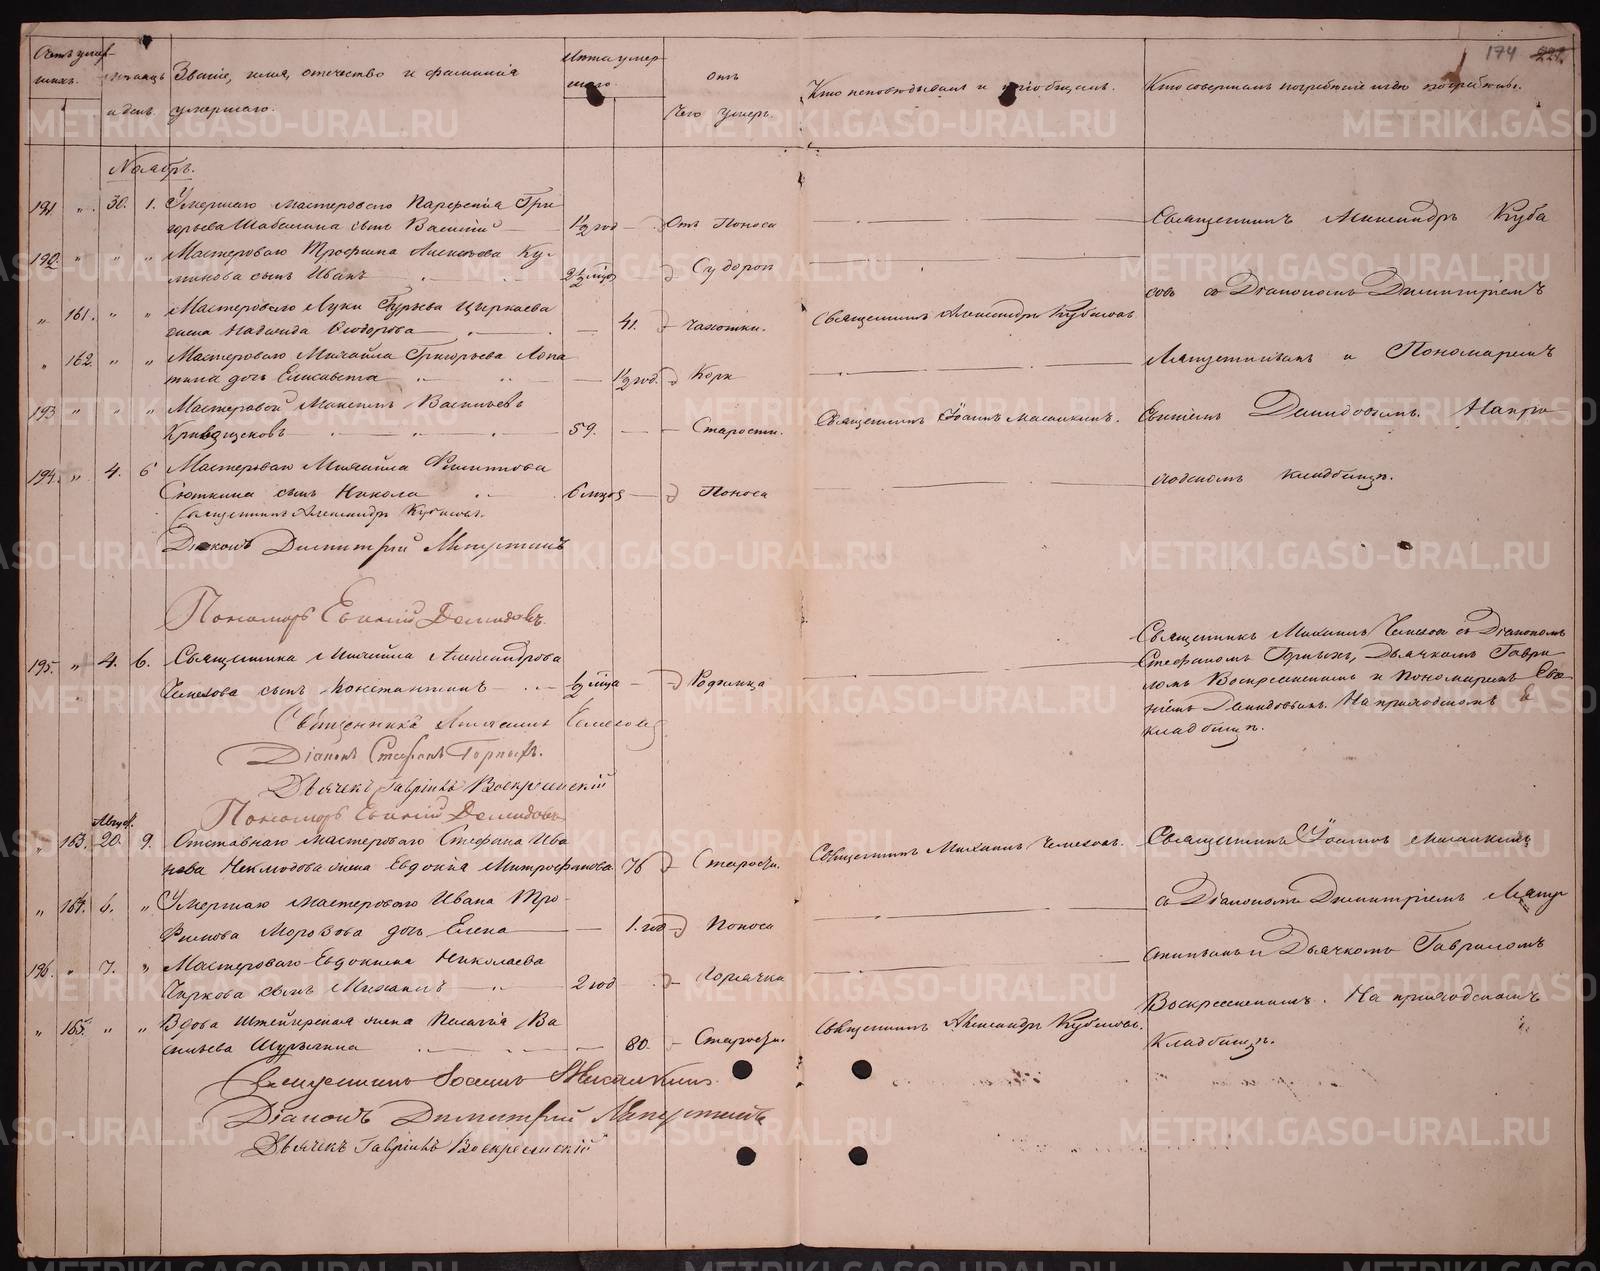 174 221.
Счетъ умер-
шихъ.
Мѣсяцъ
и день.
Званіе, имя, отечество и фамилія
умершаго.
Лѣта умер
шаго.
отъ
чего умеръ.
Кто исповѣдывалъ и пріобщалъ.
Кто совершалъ погребеніе и гдѣ погребены.
Ноябрь.
191 " 30. 1. Умершаго мастероваго Парфентія Гри
горьева сынъ Василій 1/2 год Отъ Поноса
192. " " " Мастероваго Трофима Ку-
ликова сынъ Иванъ 2 1/2 мѣся Судорог
" 161. " " Мастероваго Луки Гурьева Цыркаева
жена Надежда Ѳедорова 41. Чахотки. Священникъ Александръ Кубасовъ
" 162. " " Мастероваго Михаила Григорьева Лопа
тина дочь Елисавета 1/2 год. Кори
193 " " " Мастеровой Максимъ Васильевъ
59. Старости. Священникъ Іоаннъ
194. " 4. 6 Мастероваго Михаила Филиппова
Сюткина сынъ Никола 6 мѣся Поноса
Священникъ Александръ Куба
совъ съ Діакономъ Димитріемъ
и Пономаремъ
Евгеніемъ Демидовымъ. На при
ходскомъ кладбищѣ.
Священникъ Александръ Кубасовъ.
Діаконъ Димитрій
Пономарь Евгеній Демидовъ.
195. " 4. 6. Священника Михаила Александрова
Чемезова сынъ Константинъ 1/2 мѣца Родимца
Священникъ Михаилъ Чемезовъ съ Діакономъ
Стефаномъ Горныхъ, Дьячкомъ Гаври
ломъ Воскресенскимъ и Пономаремъ Евге
ніемъ Демидовымъ. На приходскомъ
кладбищѣ.
Священникъ Михаилъ Чемезовъ
Діаконъ Стефанъ Горныхъ.
Дьячекъ Гавріилъ Воскресенскій
Пономарь Евгеній Демидовъ
Август.
" 163. 20. 9. Отставнаго мастероваго Стефана Ива
нова жена Евдокія Митрофанова 76 Старости. Священникъ Михаилъ Чемезовъ.
" 164. 6. " Умершаго мастероваго Ивана Тро-
фимова Морозова дочь Елена 1. год Поноса
196. " 7. " Мастероваго Евдокима Николаева
Чиркова сынъ Михаилъ 2 год Горячки
" 165. " " Вдова Штейгерская жена Пелагія Ва
сильева 80. Старости. Священникъ Александръ Кубасовъ.
Священникъ Іоаннъ
съ Діакономъ Димитріемъ
и Дьячкомъ Гавриломъ
Воскресенскимъ. На приходскомъ
Кладбищѣ.
Священникъ Іоаннъ
Діаконъ Димитрій
Дьячекъ Гавріилъ Воскресенскій
METRIKI.GASO-URAL.RU